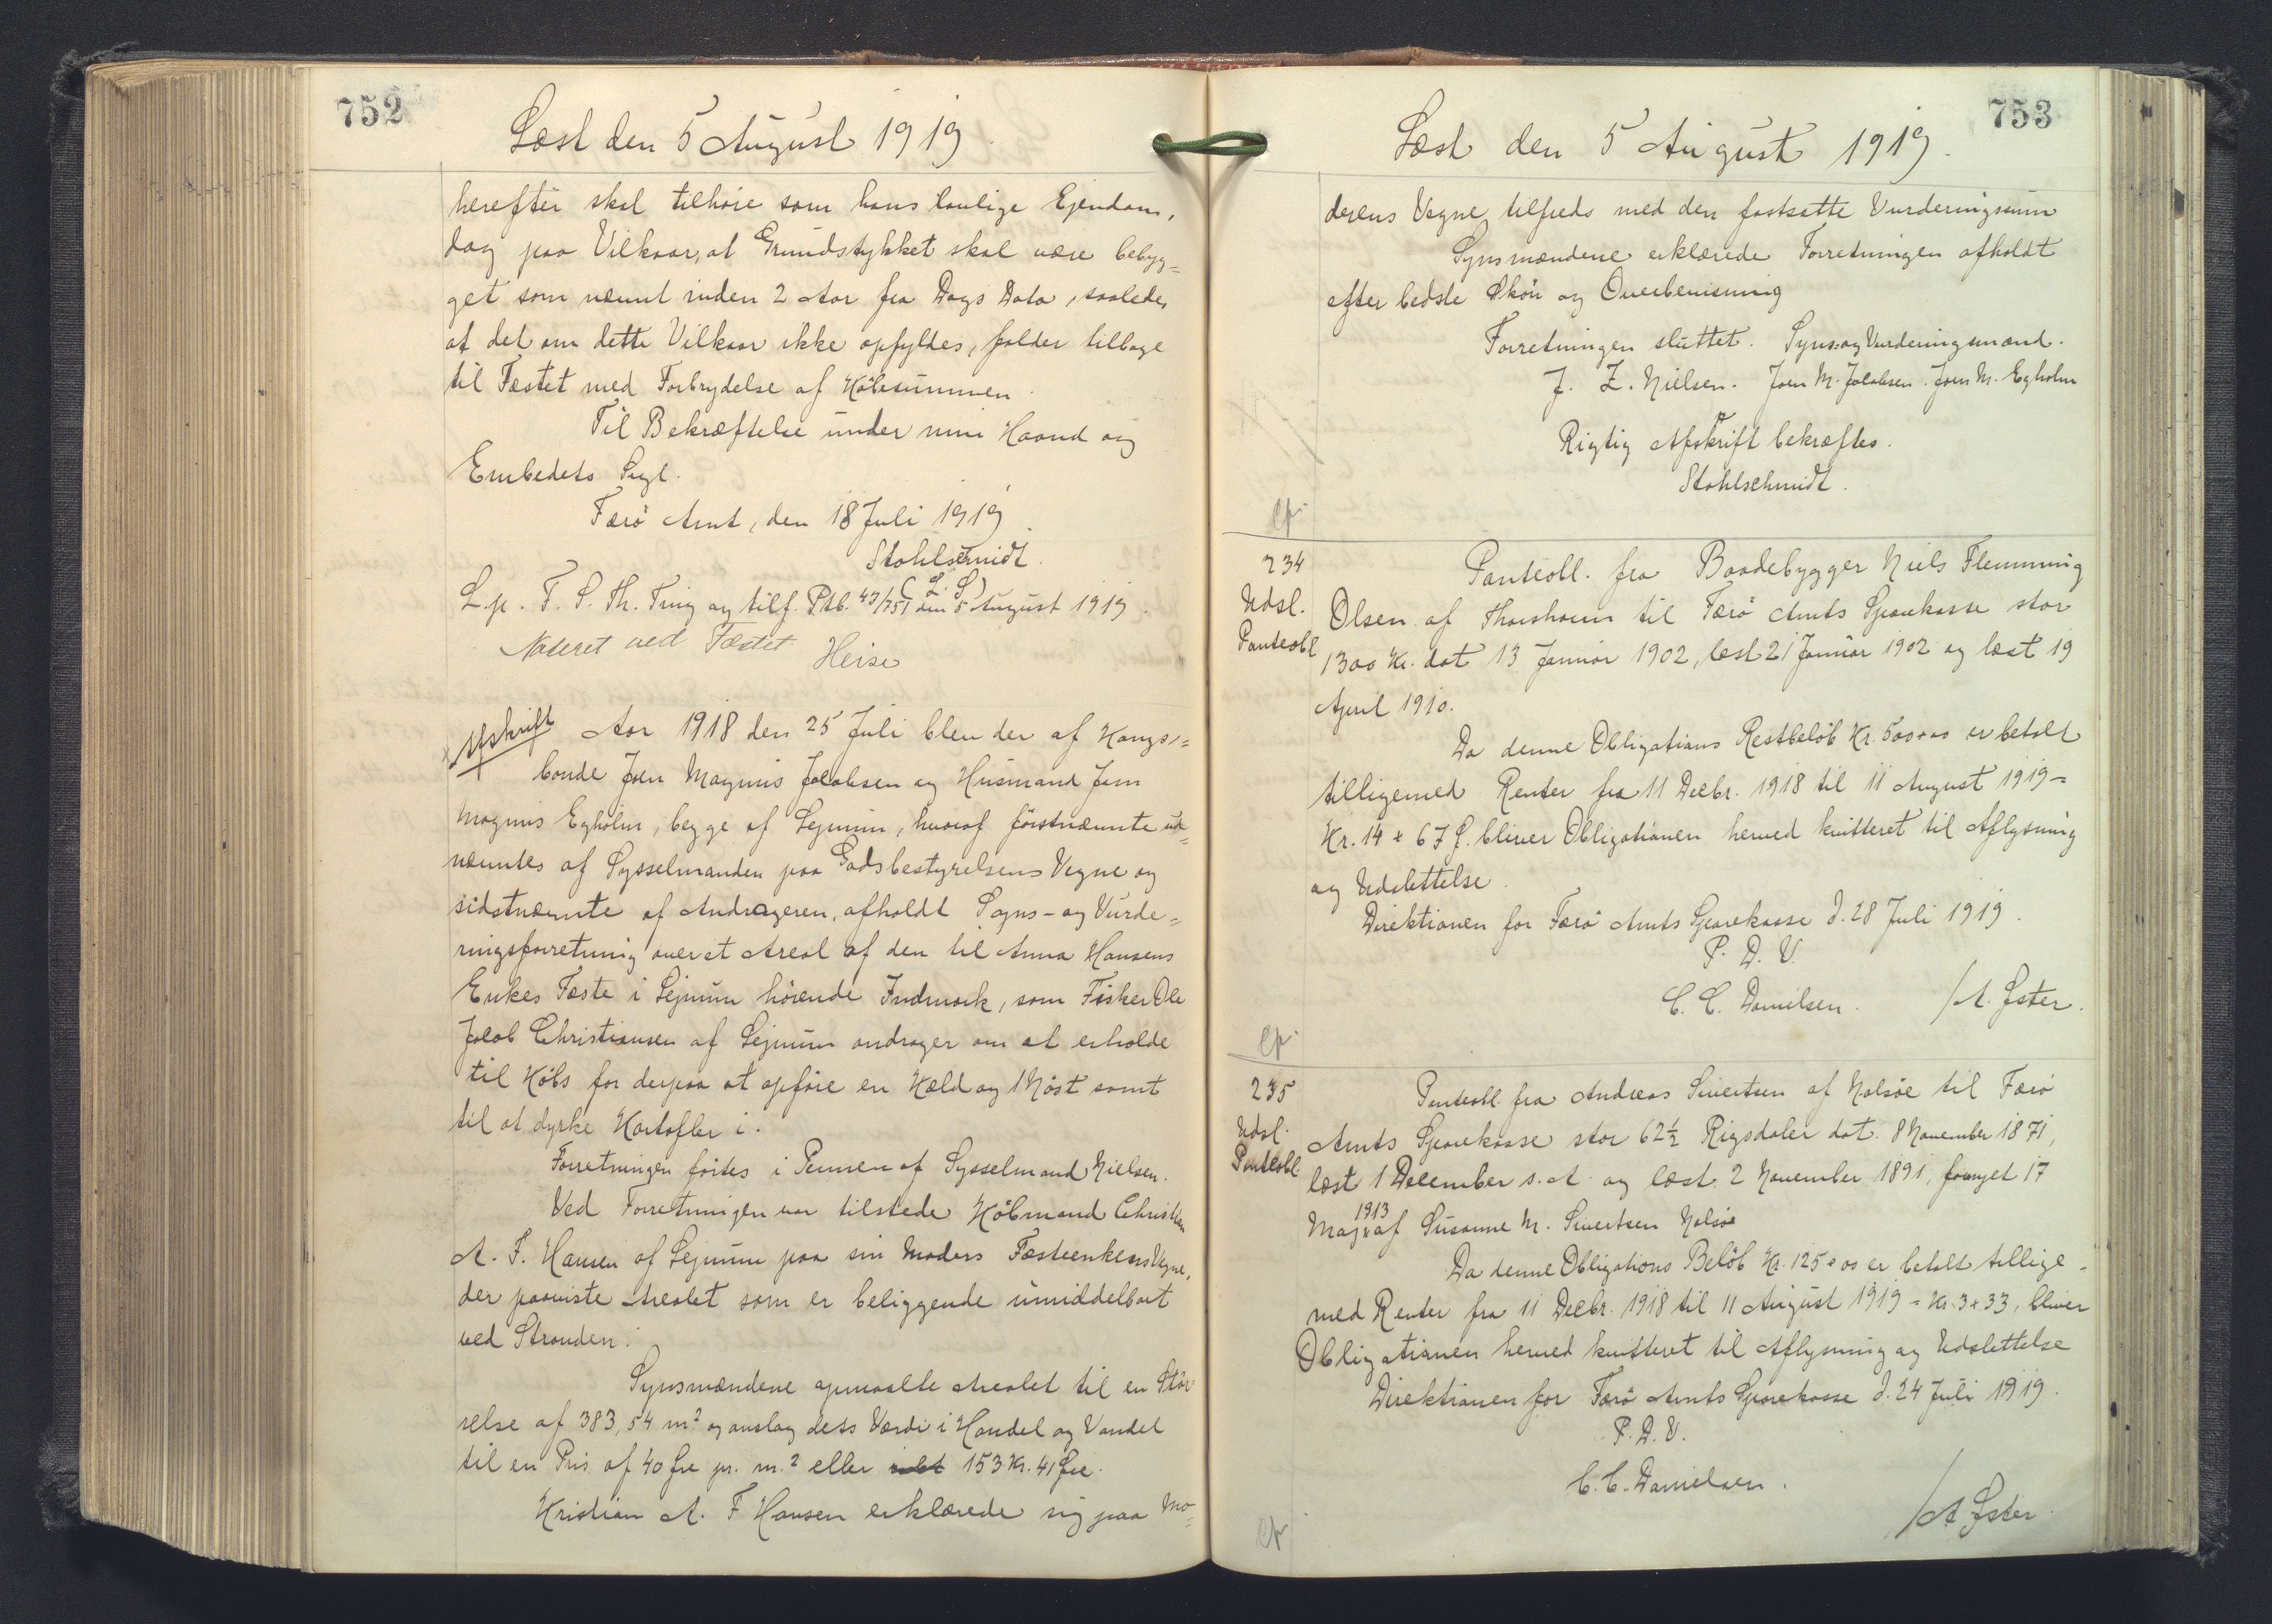 752
Læst den 5 August 1919
herefter skal tilhøre som hans lovlige Ejendom,
dog paa Vilkaar, at Grundstykket skal være bebyg=
get som nævnt inden 2 Aar fra Dags Dato, saaledes
at det om dette Vilkaar ikke opfyldes, falder tilbage
til Fæstet med Forbrydelse af Købesummen.
Til Bekræftelse under min Haand og
Embedets Segl.
Færö Amt, den 18 Juli 1919.
Stahlschmidt.
(L. S)
L. p. F. S. Th. Ting og tilf. Ptb. 43/751 den 5 August 1919.
Noteret ved Fæstet Heise
Afskrift Aar 1918 den 25 Juli blev der af Kongs=
bonde Joen Magnus Jacobsen og Husmand Joen
Magnus Egholm, begge af Sejnum, hvoraf förstnævnte ud=
nævntes af Sysselmanden paa Godsbestyrelsens Vegne og
sidstnævnte af Andrageren, afholdt Syns- og Vurde=
ringsforretning over et Areal af den til Anna Hansens
Enkes Fæste i Sejnum hörende Indmark, som Fisker Ole
Jacob Christiansen af Sejnum andrager om at erholde
til Købs for derpaa at opföre en Kæld og 1 Nöst samt
til at dyrke Kartofler i.
Forretningen förtes i Pennen af Sysselmand Nielsen.
Ved Forretningen var tilstede Köbmand Christian
A. F. Hansen af Sejnum paa sin Moders Fæsteenkens Vegne,
der paaviste Arealet som er beliggende umiddelbart
ved Stranden.
Synsmændene opmaalte Arealet til en Stör
relse af 383,54 m² og anslog dets Værdi i Handel og Vandel
til en Pris af 40 Øre pr. m.² eller 153 Kr. 41 Øre.
Kristian A. F Hansen erklærede sig paa Mo=
753
Læst den 5 August 1919.
derens Vegne tilfreds med den fastsatte Vurderingssum
Synsmændene erklærede Forretningen afholdt
efter bedste Skön og Overbevisning
Forretningen sluttet. Syns og Vurderingsmænd.
J. Z. Nielsen. Joen M. Jacobsen. Joen M. Egholm
Rigtig Afskrift bekræftes.
Stahlschmidt.
Cpr
234
Udsl.
Panteobl
Panteobl. fra Baadebygger Niels Flemming
Olsen af Thorshavn til Færö Amts Sparekasse stor
1300 Kr. dat 13 Januar 1902, læst 21 Januar 1902 og læst 19
April 1910.
Da denne Obligations Restbelöb Kr. 500+00 er betalt
tilligemed Renter fra 11 Decbr. 1918 til 11 August 1919=
Kr. 14+67 Ø. bliver Obligationen herved kvitteret til Aflysning
og Udslettelse.
Direktionen for Færö Amts Sparekasse d. 28 Juli 1919.
P. D. V.
C. C. Danielsen. /A. Øster.
Cpr
235
Udsl.
Panteobl
Panteobl. fra Andreas Sivertsen af Nolsöe til Færö
Amts Sparekasse stor 62½ Rigsdaler dat. 8 November 1871,
læst 1 December s. A. og læst 2 November 1891, fornyet 17
Maj 1913 af Susanne M. Sivertsen Nolsöe
Da denne Obligations Belöb Kr. 125+00 er betalt tillige=
med Renter fra 11 Decbr. 1918 til 11 August 1919 = Kr. 3+33, bliver
Obligationen herved kvitteret til Aflysning og Udslettelse
Direktionen for Færö Amts Sparekasse d. 24 Juli 1919.
P. D. V.
C. C. Danielsen.
/A Øster.
Cpr